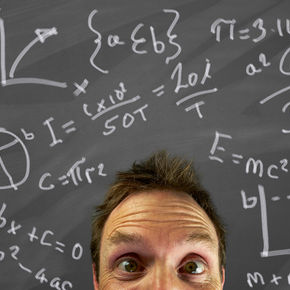 {a&b}
π=3.1
x
a²
I = cx10² / 50T = 20i / T
b
c=πr²
E=mc²
bx+c=0
b²-4ac
b
m x